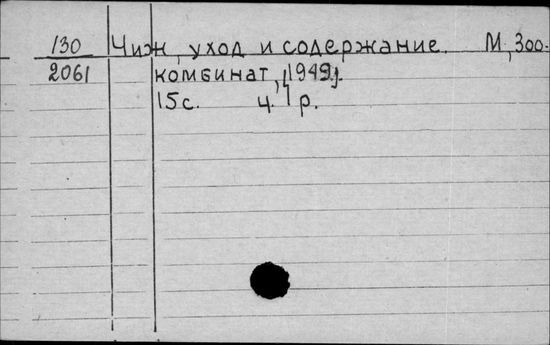 130 Чиж, уход и содержание. М, Зоо-
2061 комбинат, 1949.
15с. ц. 1 р.